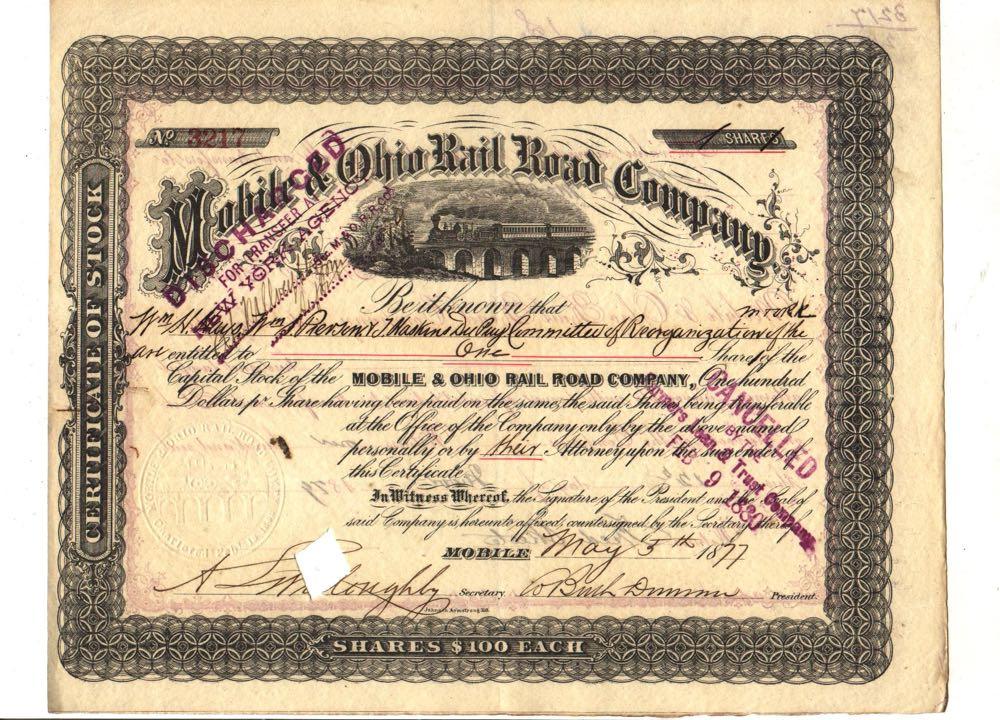 3217
No 3217
1 SHARES
Mobile & Ohio Rail Road Company
DISCHARGED
FOR TRANSFER AGENCY
NEW YORK AGENCY
M. & O. R. R. Co.
Be it known that
Wm H Hays, Wm Pierson & J Haskins Du Puy Committee of Reorganization of the
are entitled to One Shares of the
Capital Stock of the MOBILE & OHIO RAIL ROAD COMPANY, One hundred
Dollars pr Share having been paid on the same, the said Shares being transferable
at the Office of the Company only by the above named
personally or by their Attorney upon the surrender of
this Certificate
CANCELLED
BY THE
Trust Company
FEB 9 1880
In Witness Whereof, the Signature of the President and the Seal of
said Company is hereunto affixed, countersigned by the Secretary thereof
MOBILE May 5th 1877
Secretary. President.
CERTIFICATE OF STOCK
SHARES $100 EACH